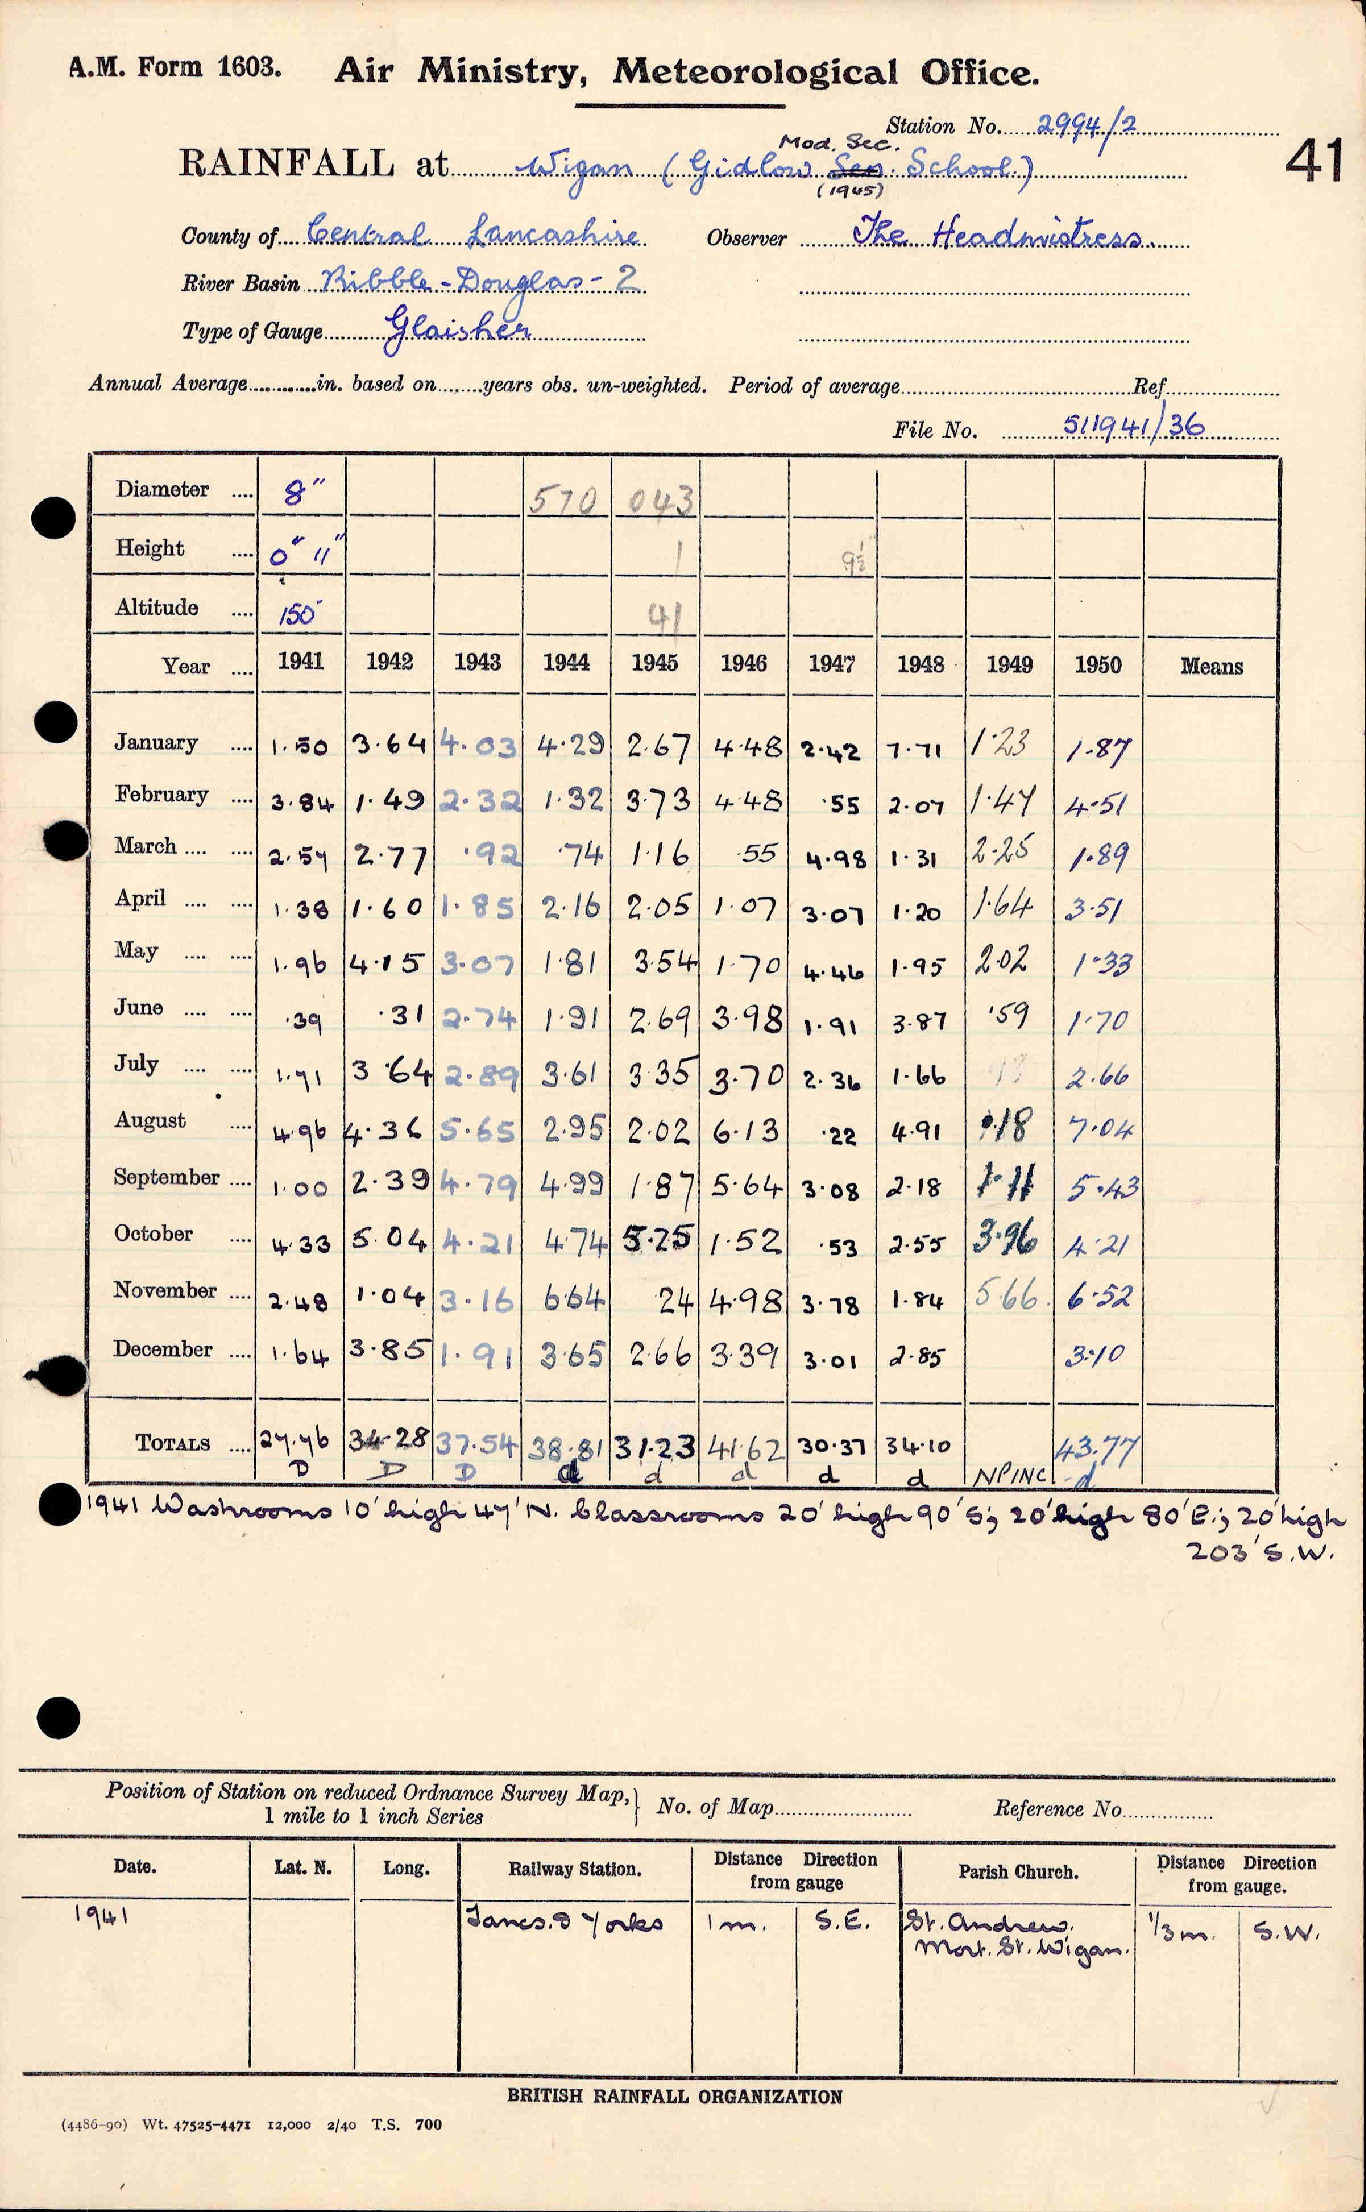 A.M. Form 1603. Air Ministry, Meteorological Office.
Station No. 2994/2
41
Mod. Sec.
RAINFALL at Wigan (Gidlow Sen. School.)
(1945)
County of Central Lancashire Observer The Headmistress.
River Basin Ribble - Douglas - 2
Type of Gauge Glaisher
Annual Average in. based on years obs. un-weighted. Period of average Ref
File No. 511941/36
Diameter 8" 570 043
Height 0" 11" 1 9½"
Altitude 150' 41
Year 1941 1942 1943 1944 1945 1946 1947 1948 1949 1950 Means
January 1.50 3.64 4.03 4.29 2.67 4.48 2.42 7.71 1.23 1.87
February 3.84 1.49 2.32 1.32 3.73 4.48 .55 2.07 1.47 4.51
March 2.57 2.77 .92 .74 1.16 .55 4.98 1.31 2.25 1.89
April 1.38 1.60 1.85 2.16 2.05 1.07 3.07 1.20 1.64 3.51
May 1.96 4.15 3.07 1.81 3.54 1.70 4.46 1.95 2.02 1.33
June .39 .31 2.74 1.91 2.69 3.98 1.91 3.87 .59 1.70
July 1.71 3.64 2.89 3.61 3.35 3.70 2.36 1.66 2.66
August 4.96 4.36 5.65 2.95 2.02 6.13 .22 4.91 .18 7.04
September 1.00 2.39 4.79 4.99 1.87 5.64 3.08 2.18 1.11 5.43
October 4.33 5.04 4.21 4.74 5.25 1.52 .53 2.55 3.96 4.21
November 2.48 1.04 3.16 6.64 24 4.98 3.78 1.84 5.66 6.52
December 1.64 3.85 1.91 3.65 2.66 3.39 3.01 2.85 3.10
TOTALS 27.76 34.28 37.54 38.81 31.23 41.62 30.37 34.10 43.77
D D D d d d d d NP INC d
1941 Washrooms 10' high 47' N. Classrooms 20' high 90' S; 20' high 80' E.; 20' high
203' S.W.
Position of Station on reduced Ordnance Survey Map, No. of Map Reference No.
1 mile to 1 inch Series
Date. Lat. N. Long. Railway Station. Distance Direction from gauge Parish Church. Distance Direction from gauge.
1941 Lancs. & Yorks 1 m. S.E. St. Andrew. 1/3 m. S.W.
Mort. St. Wigan.
BRITISH RAINFALL ORGANIZATION
(4486-90) Wt. 47525-4471 12,000 2/40 T.S. 700